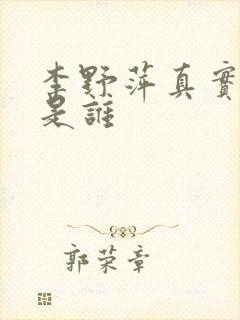 李野萍真實
是誰
郭荣章